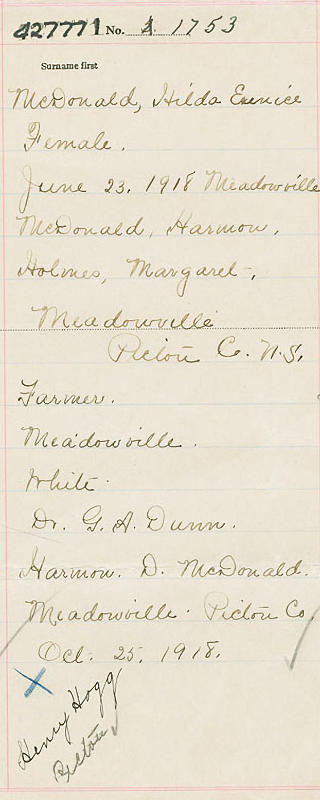 427771 No. 1753
Surname first
McDonald, Hilda Eunice
Female.
June 23, 1918 Meadowville
McDonald, Harmon,
Holmes, Margaret,
Meadowville
Pictou Co. N.S.
Farmer.
Meadowville.
White.
Dr. G. A. Dunn.
Harmon. D. McDonald.
Meadowville. Pictou Co.
Oct. 25, 1918.
X
Henry Hogg
Pictou